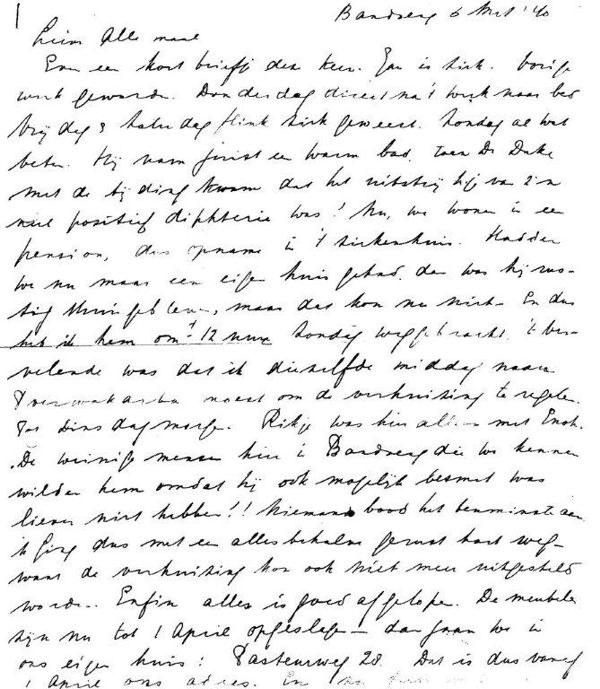 Bandoeng 6 Mrt '40
Lieve Allemaal
Even een kort briefje deze keer. Jan is ziek. Vorige
week geworden. Donderdag direct na 't werk naar bed
Vrijdag & Zaterdag flink ziek geweest. Zondag al wat
beter. Hij nam juist een warm bad, toen Dr. Duke
met de tijding kwam dat het uitstrijkje van z'n
keel positief diphterie was! Nu, we wonen in een
pension, dus opname in 't ziekenhuis. Hadden
we nu maar een eigen huis gehad, dan was hij rus-
tig thuisgebleven, maar dat kon nu niet. En dus
heb ik hem om 12 uur Zondag weggebracht. 't ver-
velende was dat ik diezelfde middag naar
Poerwakarta moest om de verhuizing te regelen
Tot Dinsdagmorgen. Rikje was hier alleen met Enok.
De weinige mensen hier in Bandoeng die we kennen
wilden hem omdat hij ook mogelijk besmet was
liever niet hebben!! Niemand bood het tenminste aan
ik ging dus met een allesbehalve gerust hart weg
want de verhuizing kon ook niet meer uitgesteld
worden. Enfin alles is goed afgelopen. De meubelen
zijn nu tot 1 April opgeslagen dan gaan we in
ons eigen huis: Pasteurweg 28. Dat is dus vanaf
1 April ons adres. En